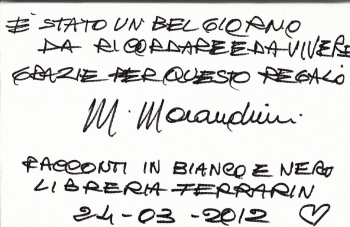 È STATO UN BEL GIORNO
DA RICORDARE E DA VIVERE
GRAZIE PER QUESTO REGALO
M. Morandini
RACCONTI IN BIANCO E NERO
LIBRERIA FERRARIN
24-03-2012 ♡